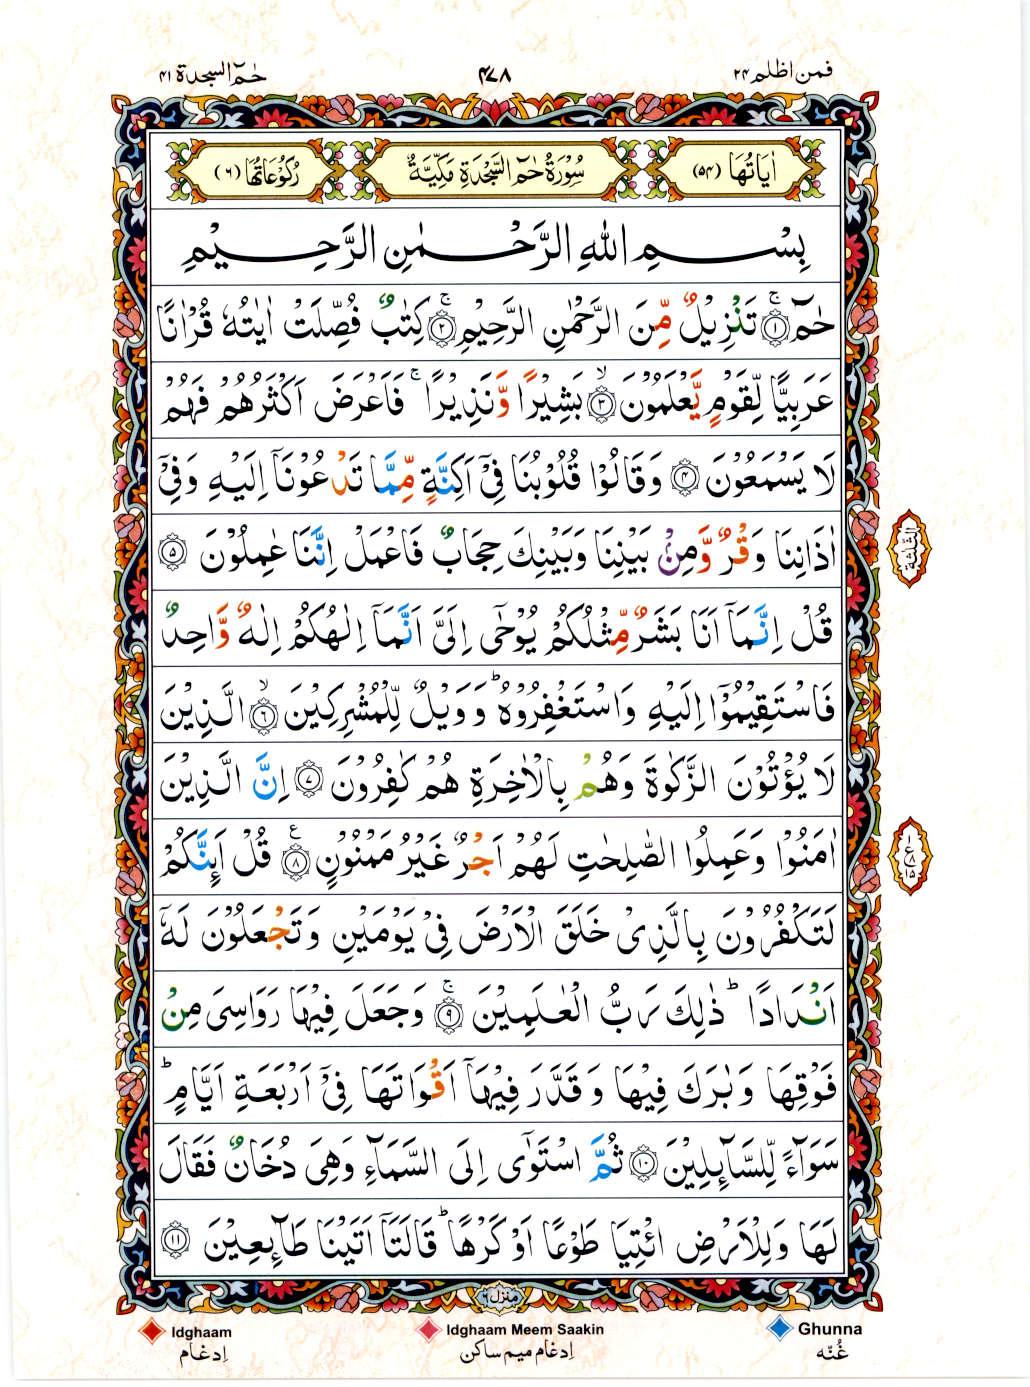 فمن اظلم ۲۴
۴۷۸
حٰمٓ السجدة ۴۱
اٰيَاتُهَا (۵۴)
سُوْرَةُ حٰمٓ السَّجْدَةِ مَكِّيَّةٌ
رُكُوْعَاتُهَا (۶)
بِسْمِ اللّٰهِ الرَّحْمٰنِ الرَّحِيْمِ
حٰمٓ ۚ ﴿۱﴾ تَنْزِيْلٌ مِّنَ الرَّحْمٰنِ الرَّحِيْمِ ۚ ﴿۲﴾ كِتٰبٌ فُصِّلَتْ اٰيٰتُهٗ قُرْاٰنًا
عَرَبِيًّا لِّقَوْمٍ يَّعْلَمُوْنَ ۙ ﴿۳﴾ بَشِيْرًا وَّنَذِيْرًا ۚ فَاَعْرَضَ اَكْثَرُهُمْ فَهُمْ
لَا يَسْمَعُوْنَ ﴿۴﴾ وَقَالُوْا قُلُوْبُنَا فِيْۤ اَكِنَّةٍ مِّمَّا تَدْعُوْنَاۤ اِلَيْهِ وَفِيْۤ
اٰذَانِنَا وَقْرٌ وَّمِنْۢ بَيْنِنَا وَبَيْنِكَ حِجَابٌ فَاعْمَلْ اِنَّنَا عٰمِلُوْنَ ﴿۵﴾
الثلٰثة
قُلْ اِنَّمَاۤ اَنَا بَشَرٌ مِّثْلُكُمْ يُوْحٰۤى اِلَىَّ اَنَّمَاۤ اِلٰهُكُمْ اِلٰهٌ وَّاحِدٌ
فَاسْتَقِيْمُوْۤا اِلَيْهِ وَاسْتَغْفِرُوْهُ ؕ وَوَيْلٌ لِّلْمُشْرِكِيْنَ ۙ ﴿۶﴾ الَّذِيْنَ
لَا يُؤْتُوْنَ الزَّكٰوةَ وَهُمْ بِالْاٰخِرَةِ هُمْ كٰفِرُوْنَ ﴿۷﴾ اِنَّ الَّذِيْنَ
اٰمَنُوْا وَعَمِلُوا الصّٰلِحٰتِ لَهُمْ اَجْرٌ غَيْرُ مَمْنُوْنٍ ﴿۸﴾ ع قُلْ اَئِنَّكُمْ
۱ ع ۸ ۱۵
لَتَكْفُرُوْنَ بِالَّذِىْ خَلَقَ الْاَرْضَ فِىْ يَوْمَيْنِ وَتَجْعَلُوْنَ لَهٗۤ
اَنْدَادًا ؕ ذٰلِكَ رَبُّ الْعٰلَمِيْنَ ۚ ﴿۹﴾ وَجَعَلَ فِيْهَا رَوَاسِىَ مِنْ
فَوْقِهَا وَبٰرَكَ فِيْهَا وَقَدَّرَ فِيْهَاۤ اَقْوَاتَهَا فِىْۤ اَرْبَعَةِ اَيَّامٍ ؕ
سَوَآءً لِّلسَّآئِلِيْنَ ﴿۱۰﴾ ثُمَّ اسْتَوٰۤى اِلَى السَّمَآءِ وَهِىَ دُخَانٌ فَقَالَ
لَهَا وَلِلْاَرْضِ ائْتِيَا طَوْعًا اَوْ كَرْهًا ؕ قَالَتَاۤ اَتَيْنَا طَآئِعِيْنَ ﴿۱۱﴾
منزل ۶
Ghunna
غُنّه
Idghaam Meem Saakin
اِدغام ميم ساكن
Idghaam
اِدغام